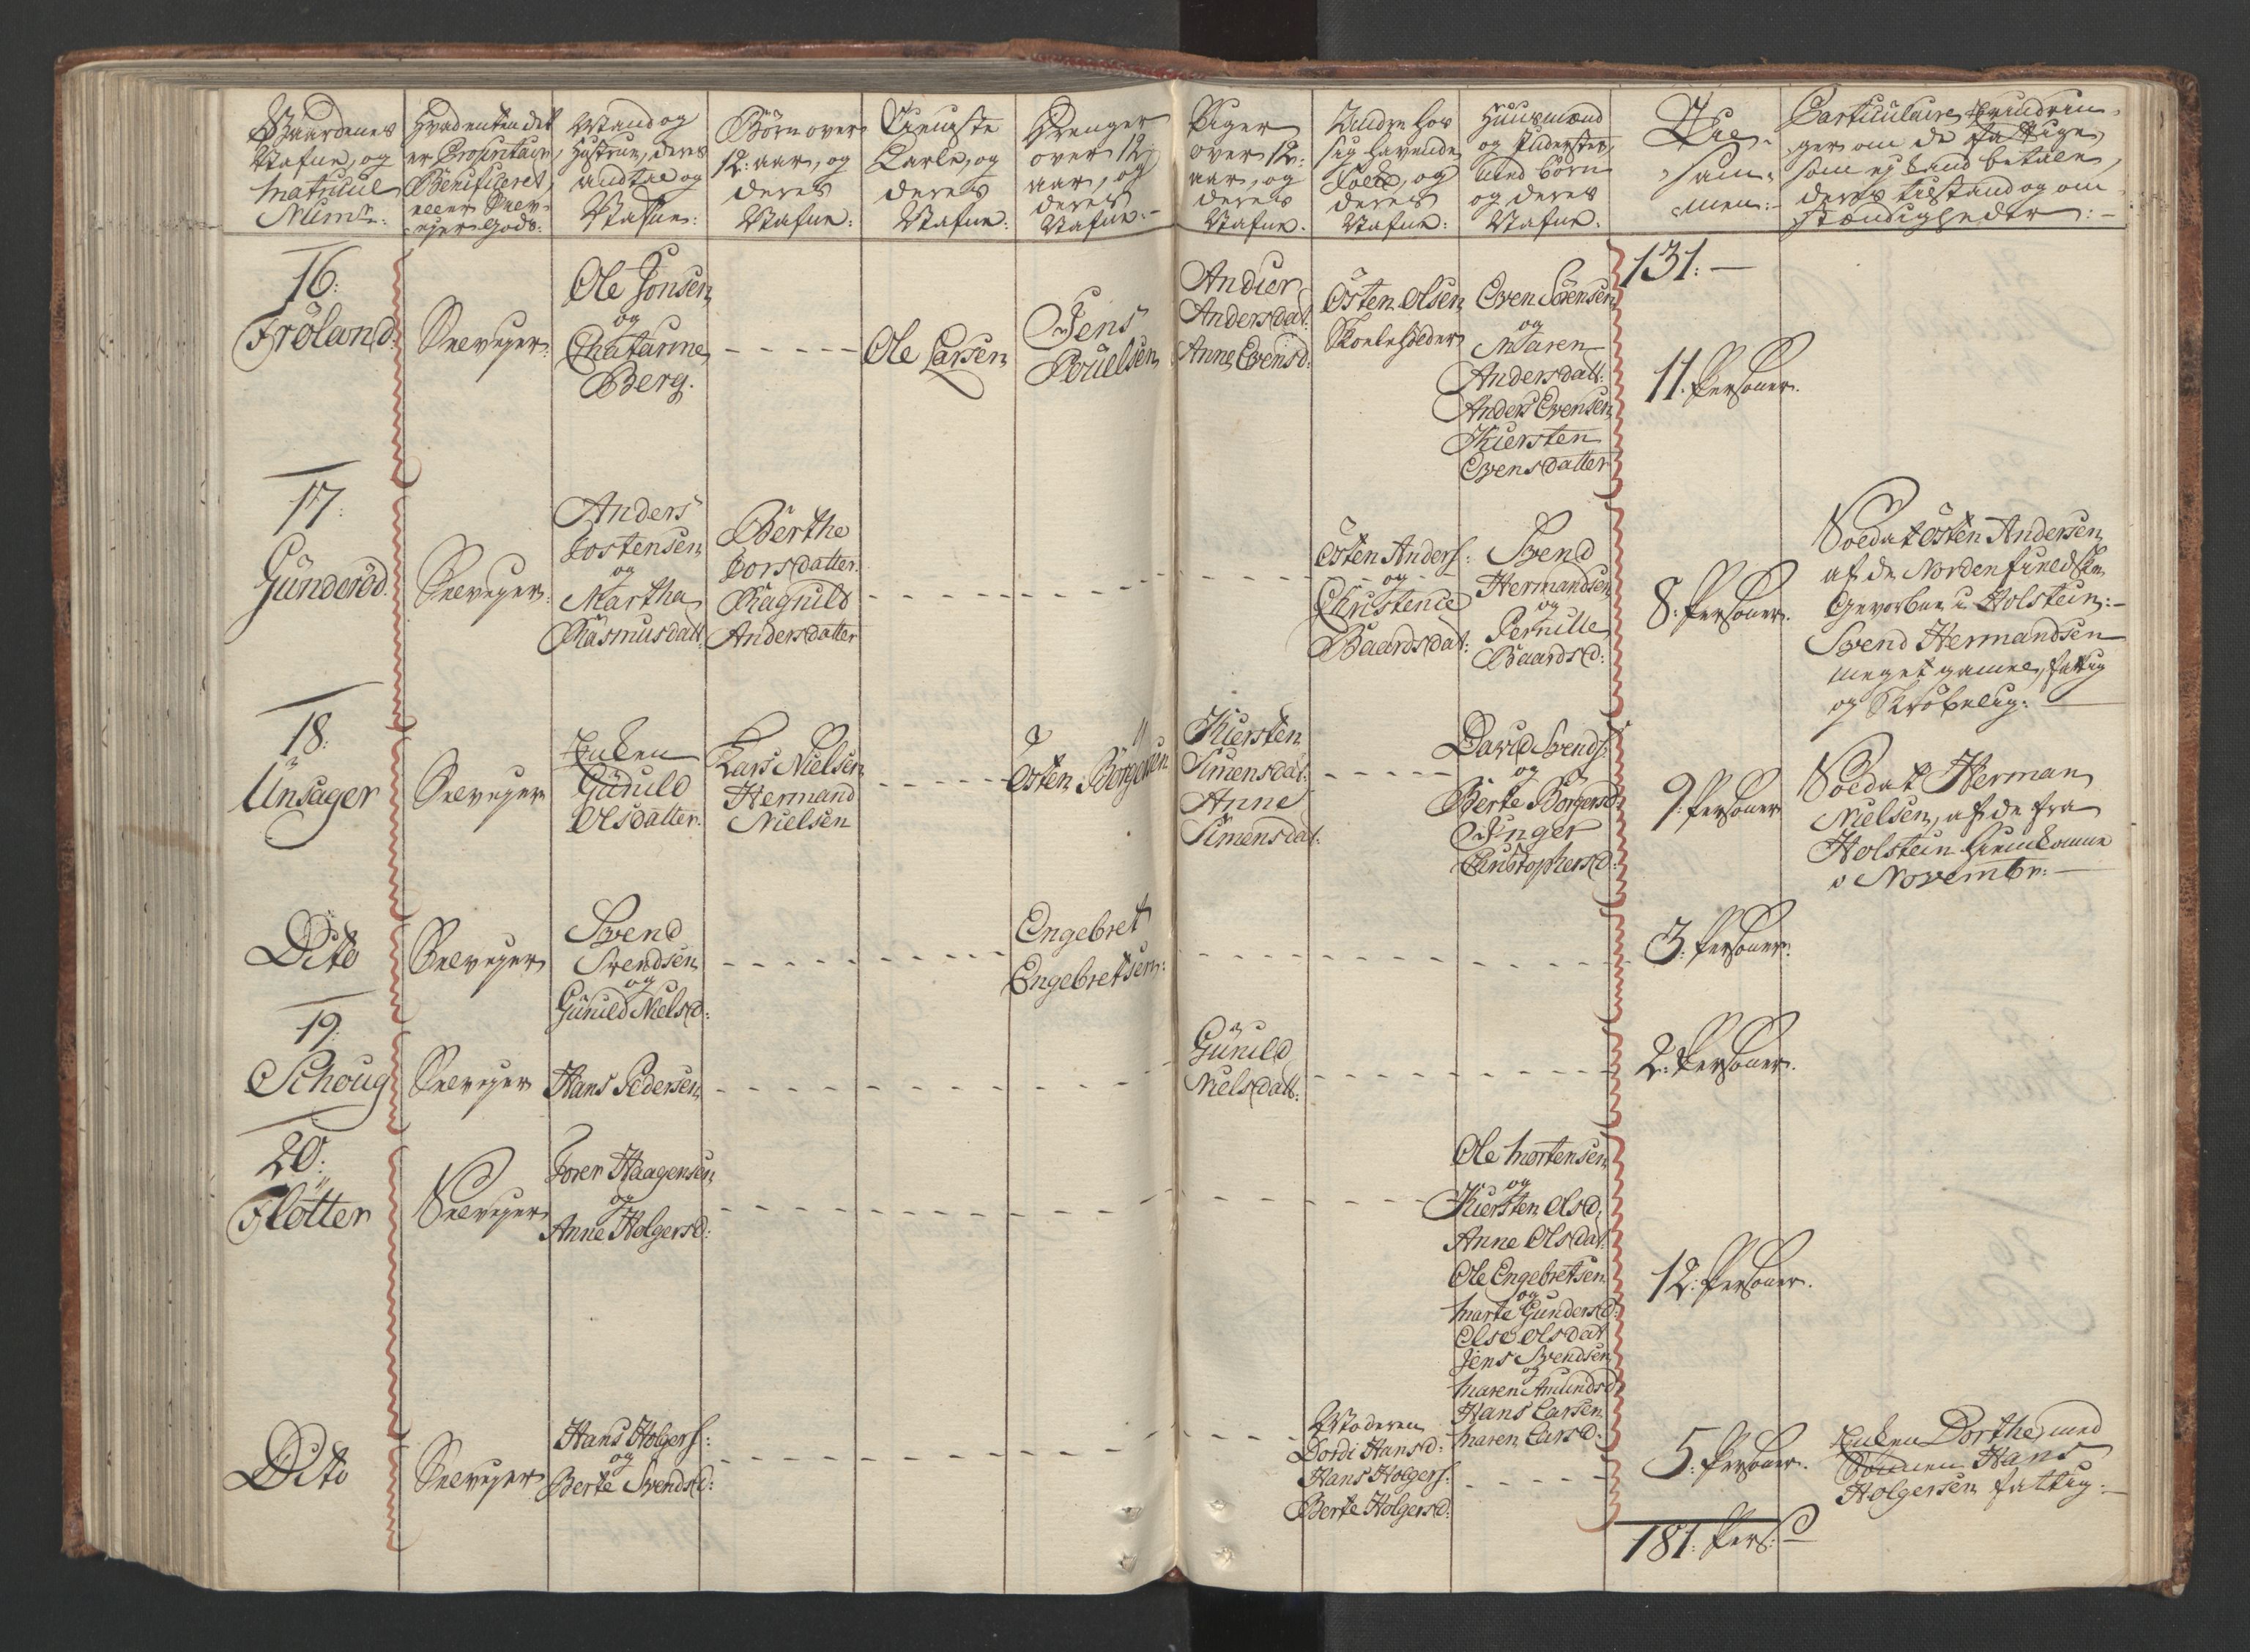 Gaardenes
Nafne, og
Matricul
Num:
Hvad enten det
er Proprietair,
Beneficeret,
eller Selv-
ejer Gods:
Mand og
Hustrue, deres
andtal og
Nafne:
Börn over
12: aar, og
deres
Nafne:
Tieniste
Karle, og
deres
Nafne:
Drenger
over 12:
aar, og
deres
Nafne:
Piger
over 12:
aar, og
deres
Nafne:
Andre hos
sig havende
Folk, og
deres
Nafne:
Huusmænd
og Inderster,
med börn
og deres
Nafne:
Til-
sam-
men:
Particulaire Erindrin-
ger om de fattige,
som ej kand betale,
deres tilstand og om-
stændigheder:
131:
16:
Fröland
Selvejer
Ole Jonsen
og
Chatarine
Berg.
Ole Larsen
Jens
Pouelsen
Andier
Andersdat:
Anne Evensd:
Östen Olsen
Skoeleholder
Even Sörensen
og
Maren
Andersdatt:
Anders Evensen
Kiersten
Evensdatter
11. Personer.
17:
Günderöd
Selvejer
Anders
Tostensen
og
Martha
Rasmusdatt:
Berthe
Torsdatter
Ragnild
Andersdatter
Östen Anders:
og
Christence
Baardsdat:
Svend
Hermandsen
og
Pernille
Baardsd:
8: Personer.
Soldat Östen Andersen
af de Nordenfieldske
Gevorbne i Holstein:
Svend Hermandsen
meget gamel, fattig
og Skröbelig:
18:
Ünsager
Selvejer
Enken
Günild
Olsdatter
Lars Nielsen
Hermand
Nielsen
Östen Börgesen
Kiersten
Simensdat:
Anne
Simensdat:
David Svends:
og
Berte Börgersd:
Inger
Christophersd:
9: Personer
Soldat Herman
Nielsen, af de fra
Holstein hiemkomne
i Novembr:
Dito
Selvejer
Svend
Svendsen
og
Günild Nielsd:
Engebret
Engebretsen:
3: Personer:
19:
Schoug
Selvejer
Hans Pedersen
Günild
Nielsdatt:
2: Personer.
20:
Flotter
Selvejer
Torer Haagensen
og
Anne Holgersd:
Ole Mortensen
og
Kiersten Olsd:
Anne Olsdat:
Ole Engebretsen
og
Marte Gundersd:
Olse Olsdat
Jens Svendsen
og
Maren Amundsd
Hans Larsen
Maren Larsd:
12: Personer.
Dito
Selvejer
Hans Holgers:
og
Berte Svendsd:
Moderen
Dordi Hansd:
Hans Holgers:
Berte Holgersd:
5: Personer.
Enken Dorthe, med
Sönnen Hans
Holgersen fattig:
181: Pers: